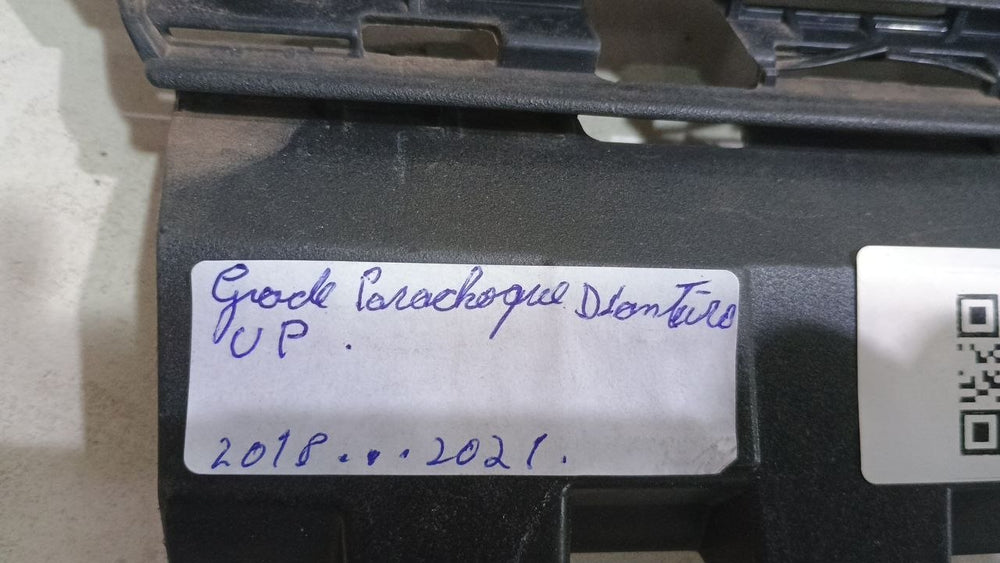 Grade Parachoque Diantiro
UP .
2018...2021.